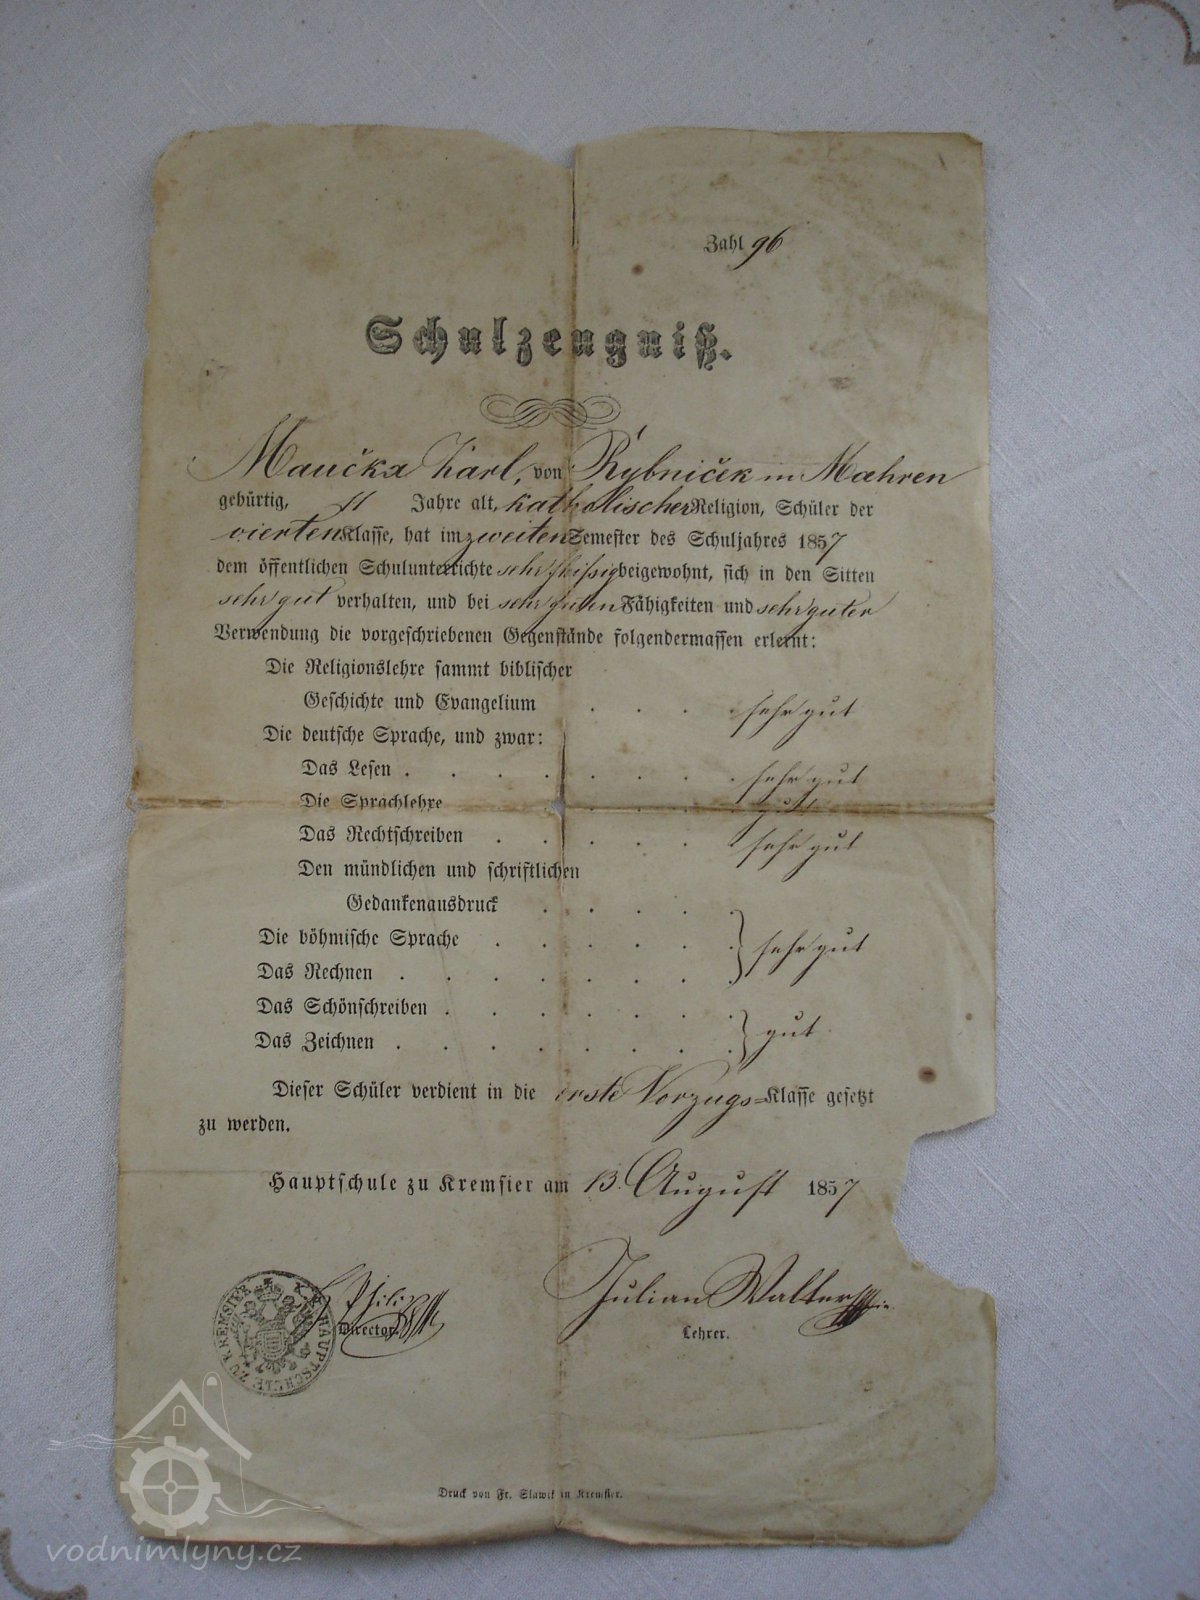 Zahl 96
Schulzeugniß.
Maučka Karl, von Rybniček in Mæhren
gebürtig, 11 Jahre alt, katholischer Religion, Schüler der
vierten Klasse, hat im zweiten Semester des Schuljahres 1857
dem öffentlichen Schulunterrichte sehr fleißig beigewohnt, sich in den Sitten
sehr gut verhalten, und bei sehr guten Fähigkeiten und sehr guter
Verwendung die vorgeschriebenen Gegenstände folgendermassen erlernt:
Die Religionslehre sammt biblischer
Geschichte und Evangelium . . . . sehr gut
Die deutsche Sprache, und zwar:
Das Lesen . . . . . . . . sehr gut
Die Sprachlehre . . . . gut
Das Rechtschreiben . . . . . . sehr gut
Den mündlichen und schriftlichen
Gedankenausdruck . . . . .
Die böhmische Sprache . . . . . . sehr gut
Das Rechnen . . . . . . . .
Das Schönschreiben . . . . . . .
Das Zeichnen . . . . . . . . gut
Dieser Schüler verdient in die erste Vorzugs=Klasse gesetzt
zu werden.
Hauptschule zu Kremsier am 13. August 1857
K. K. HAUPTSCHULE ZU KREMSIER
Julian Walter
Director
Lehrer.
Druck von Fr. Slawik in Kremsier.
vodnimlyny.cz